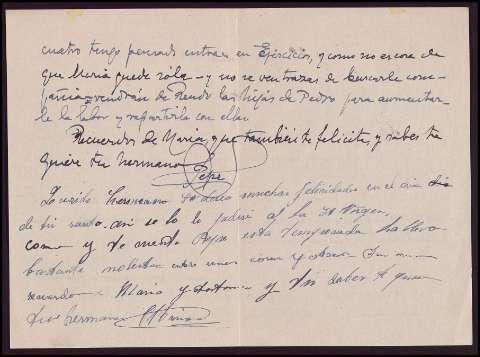 cuatro tengo pensado entrar en Ejercicios, y como no es cosa de
que María quede sola y no se ven trazas de buscarle com-
pañía vendrán de Rendo las hijas de Pedro para aumentar-
le la labor y repartirla con ella.
Recuerdos de María, que también te felicita, y sabes te
quiere tu hermano
Pepe
hermano te deseo muchas felicidades en el día
de tu santo, así se lo pediré a la St. Virgen.
como y te Pepe esta temporada ha
bastante entre unas cosas y otras
recuerdo María y y tú sabes te quiere
tu hermano